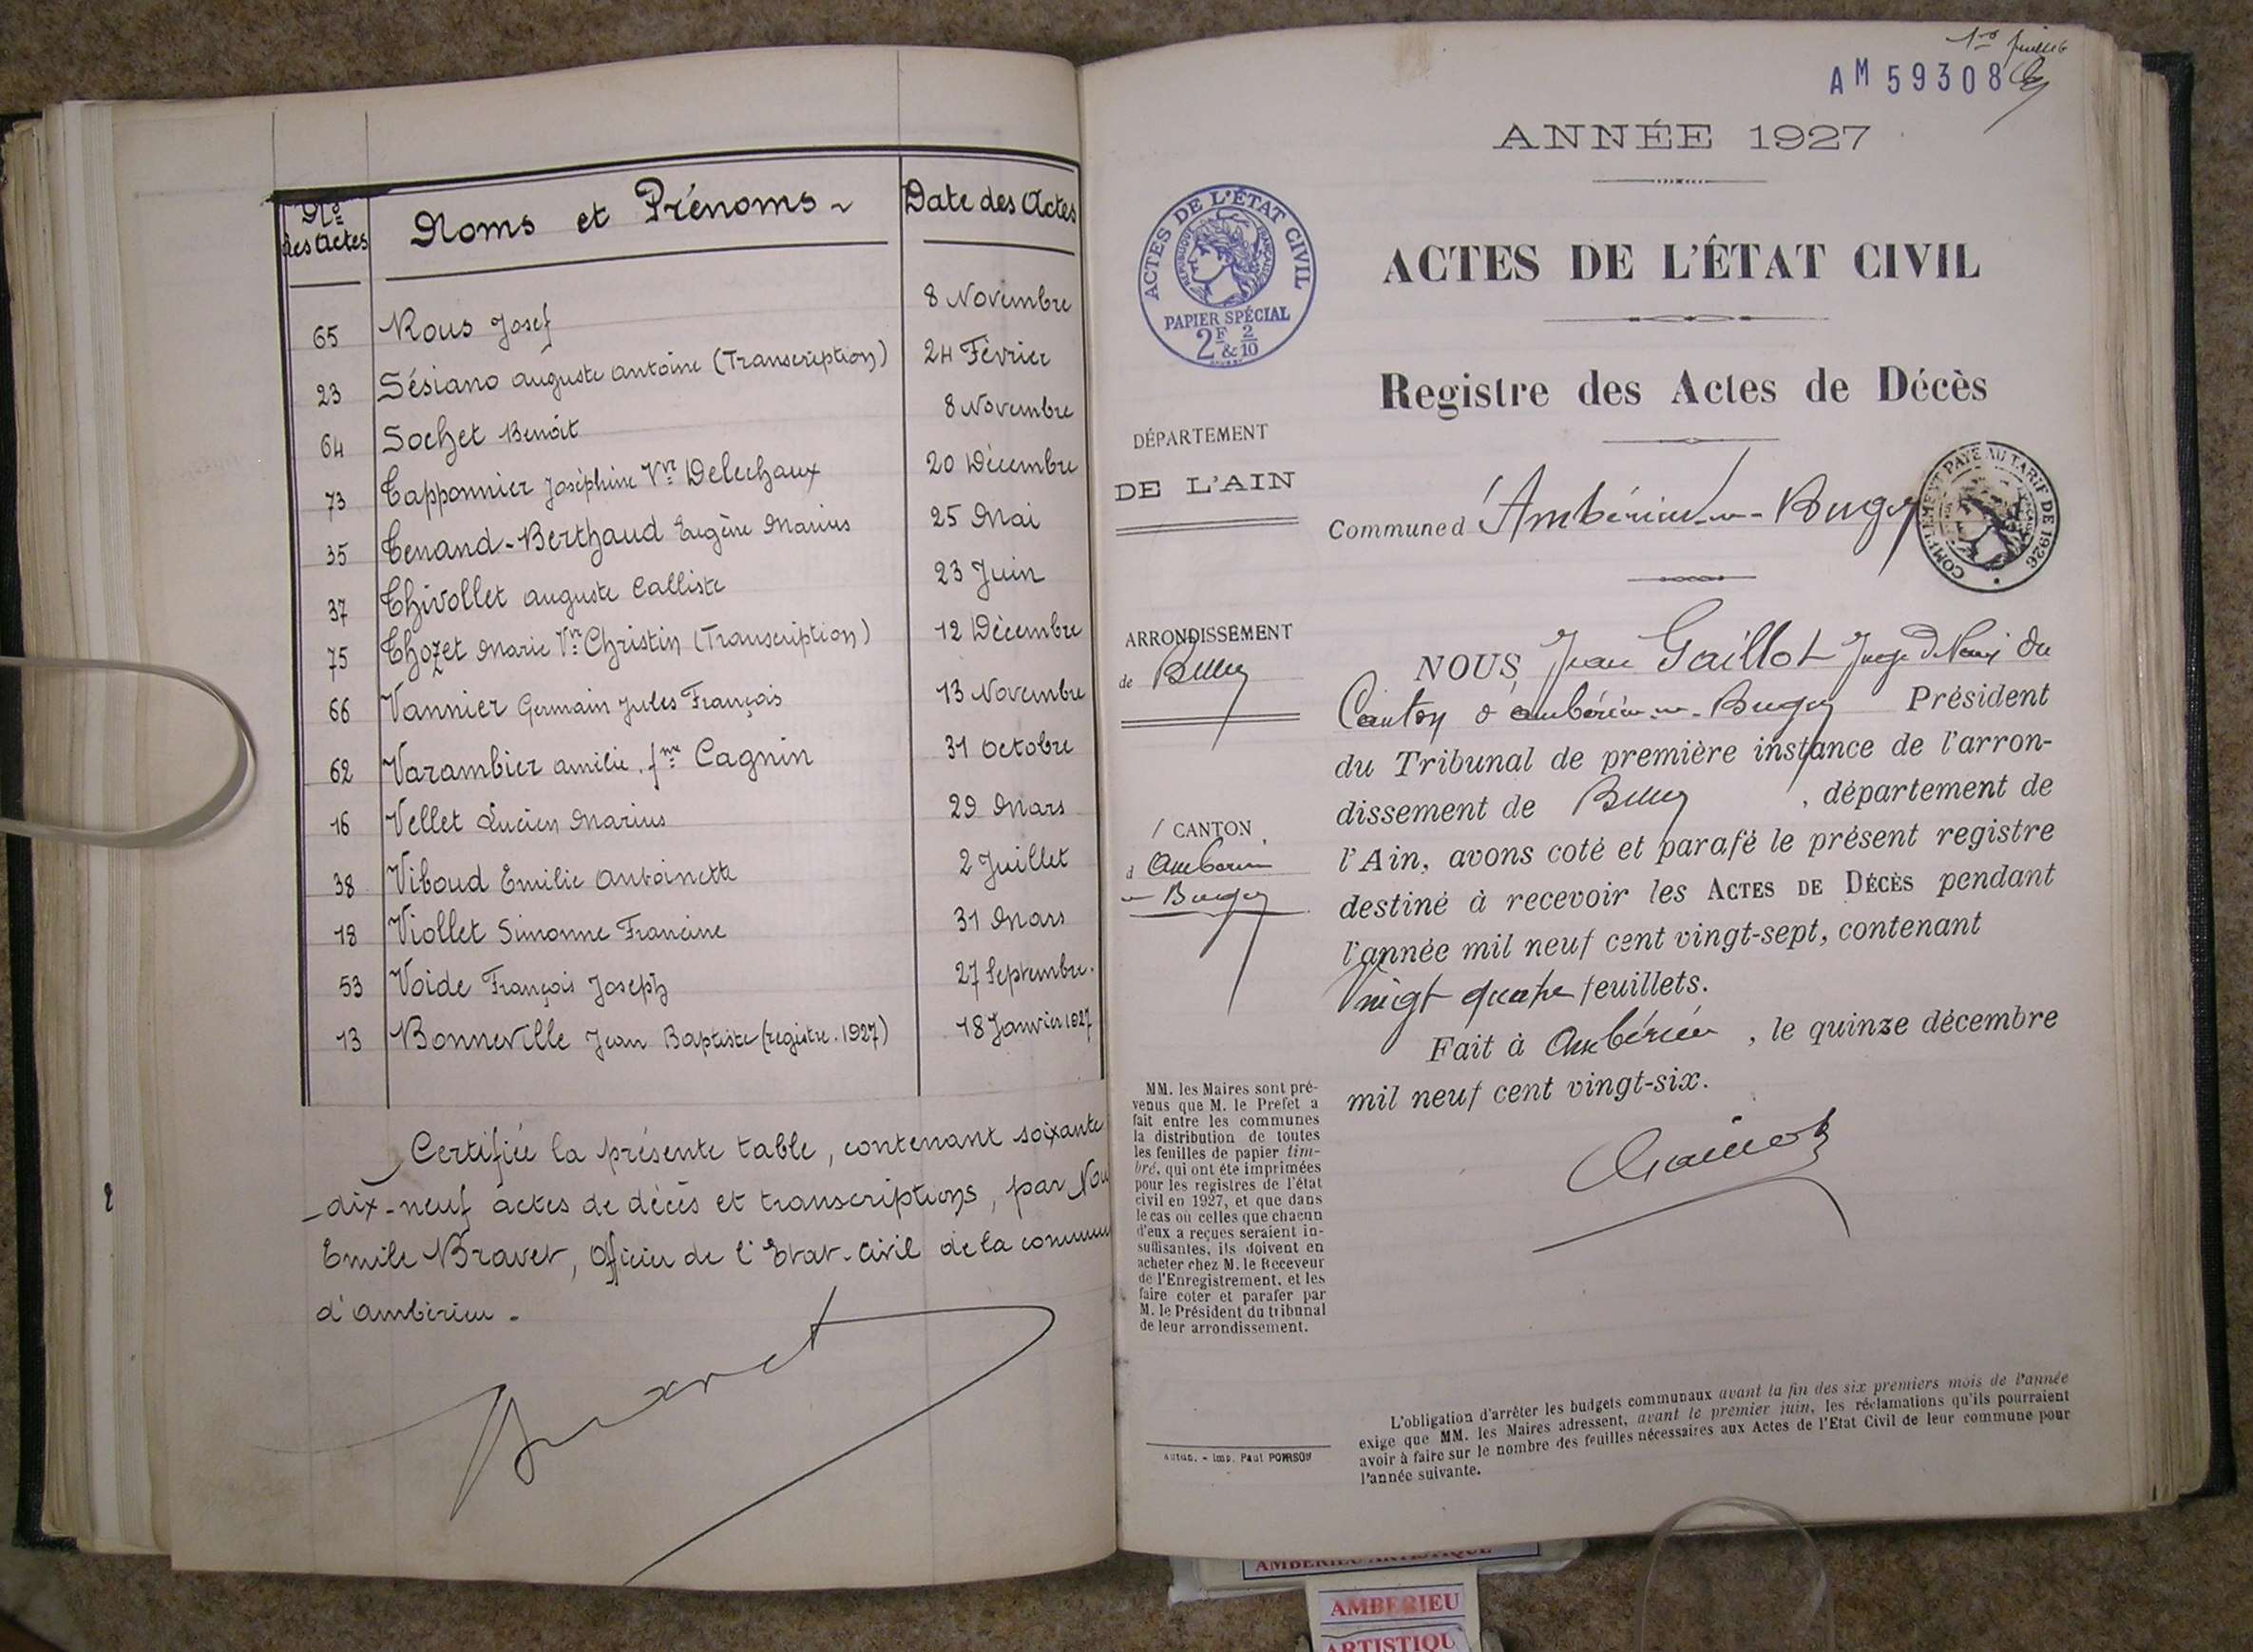 Nos des Actes | Noms et Prénoms | Date des Actes
65 | Rous Josef | 8 Novembre
23 | Sésiano Auguste Antoine (Transcription) | 24 Février
64 | Sochet Benoît | 8 Novembre
73 | Tapponnier Joséphine Vve Delechaux | 20 Décembre
35 | Tenand-Berthaud Eugène Marius | 25 Mai
37 | Thivollet Auguste Calliste | 23 Juin
75 | Thozet Marie Vve Christin (Transcription) | 12 Décembre
66 | Vannier Germain Jules François | 13 Novembre
62 | Varambier Amélie, fme Cagnin | 31 Octobre
16 | Vellet Lucien Marius | 29 Mars
38 | Viboud Emilie Antoinette | 2 Juillet
18 | Viollet Simonne Francine | 31 Mars
53 | Voide François Joseph | 27 Septembre.
13 | Bonneville Jean Baptiste (registre. 1927) | 18 Janvier 1927
Certifiée la présente table, contenant soixante
-dix-neuf actes de décès et transcriptions, par Nou
Emile Bravet, Officier de l'Etat-Civil de la commun
d'Ambérieu -
Bravet
1er feuillet
AM 59308
ANNÉE 1927
ACTES DE L'ÉTAT CIVIL
RÉPUBLIQUE FRANÇAISE
PAPIER SPÉCIAL
2F & 2/10
ACTES DE L'ÉTAT CIVIL
Registre des Actes de Décès
DÉPARTEMENT
DE L'AIN
Commune d'Ambérieu-en-Bugey
COMPLÉMENT PAYÉ AU TARIF DE 1926
ARRONDISSEMENT
de Belley
CANTON
d'Ambérieu
en Bugey
NOUS, Jean Gaillot Juge de Paix du
Canton d'Ambérieu-en-Bugey Président
du Tribunal de première instance de l'arron-
dissement de Belley, département de
l'Ain, avons coté et parafé le présent registre
destiné à recevoir les ACTES DE DÉCÈS pendant
l'année mil neuf cent vingt-sept, contenant
Vingt quatre feuillets.
Fait à Ambérieu, le quinze décembre
mil neuf cent vingt-six.
Gaillot
MM. les Maires sont pré-
venus que M. le Préfet a
fait entre les communes
la distribution de toutes
les feuilles de papier tim-
bré, qui ont été imprimées
pour les registres de l'état
civil en 1927, et que dans
le cas où celles que chacun
d'eux a reçues seraient in-
suffisantes, ils doivent en
acheter chez M. le Receveur
de l'Enregistrement, et les
faire coter et parafer par
M. le Président du tribunal
de leur arrondissement.
Autun. - Imp. Paul POIRSON
L'obligation d'arrêter les budgets communaux avant la fin des six premiers mois de l'année
exige que MM. les Maires adressent, avant le premier juin, les réclamations qu'ils pourraient
avoir à faire sur le nombre des feuilles nécessaires aux Actes de l'Etat Civil de leur commune pour
l'année suivante.
AMBERIEU ARTISTIQUE
AMBERIEU
ARTISTIQU